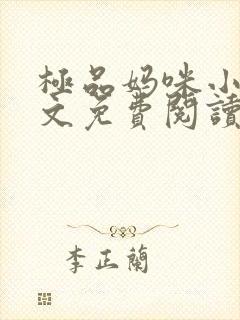 極品妈咪小
文免費閱讀
李正蘭